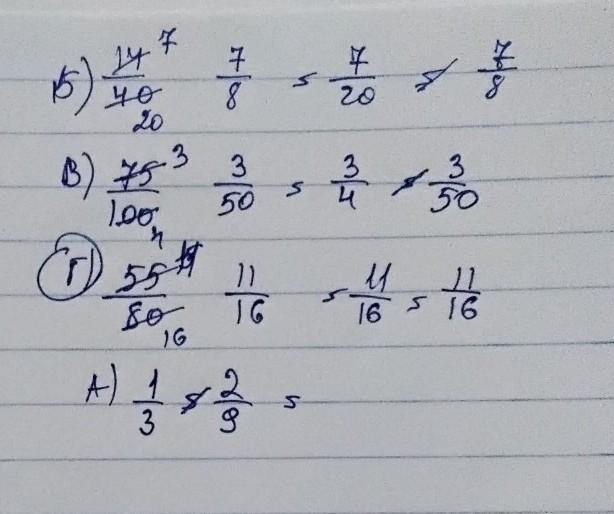 Б) 14/40 7/20 7/8 = 7/20 ≠ 7/8
В) 75/100 3/4 3/50 = 3/4 ≠ 3/50
Г) 55/80 11/16 11/16 = 11/16 = 11/16
А) 1/3 ≠ 2/9 =